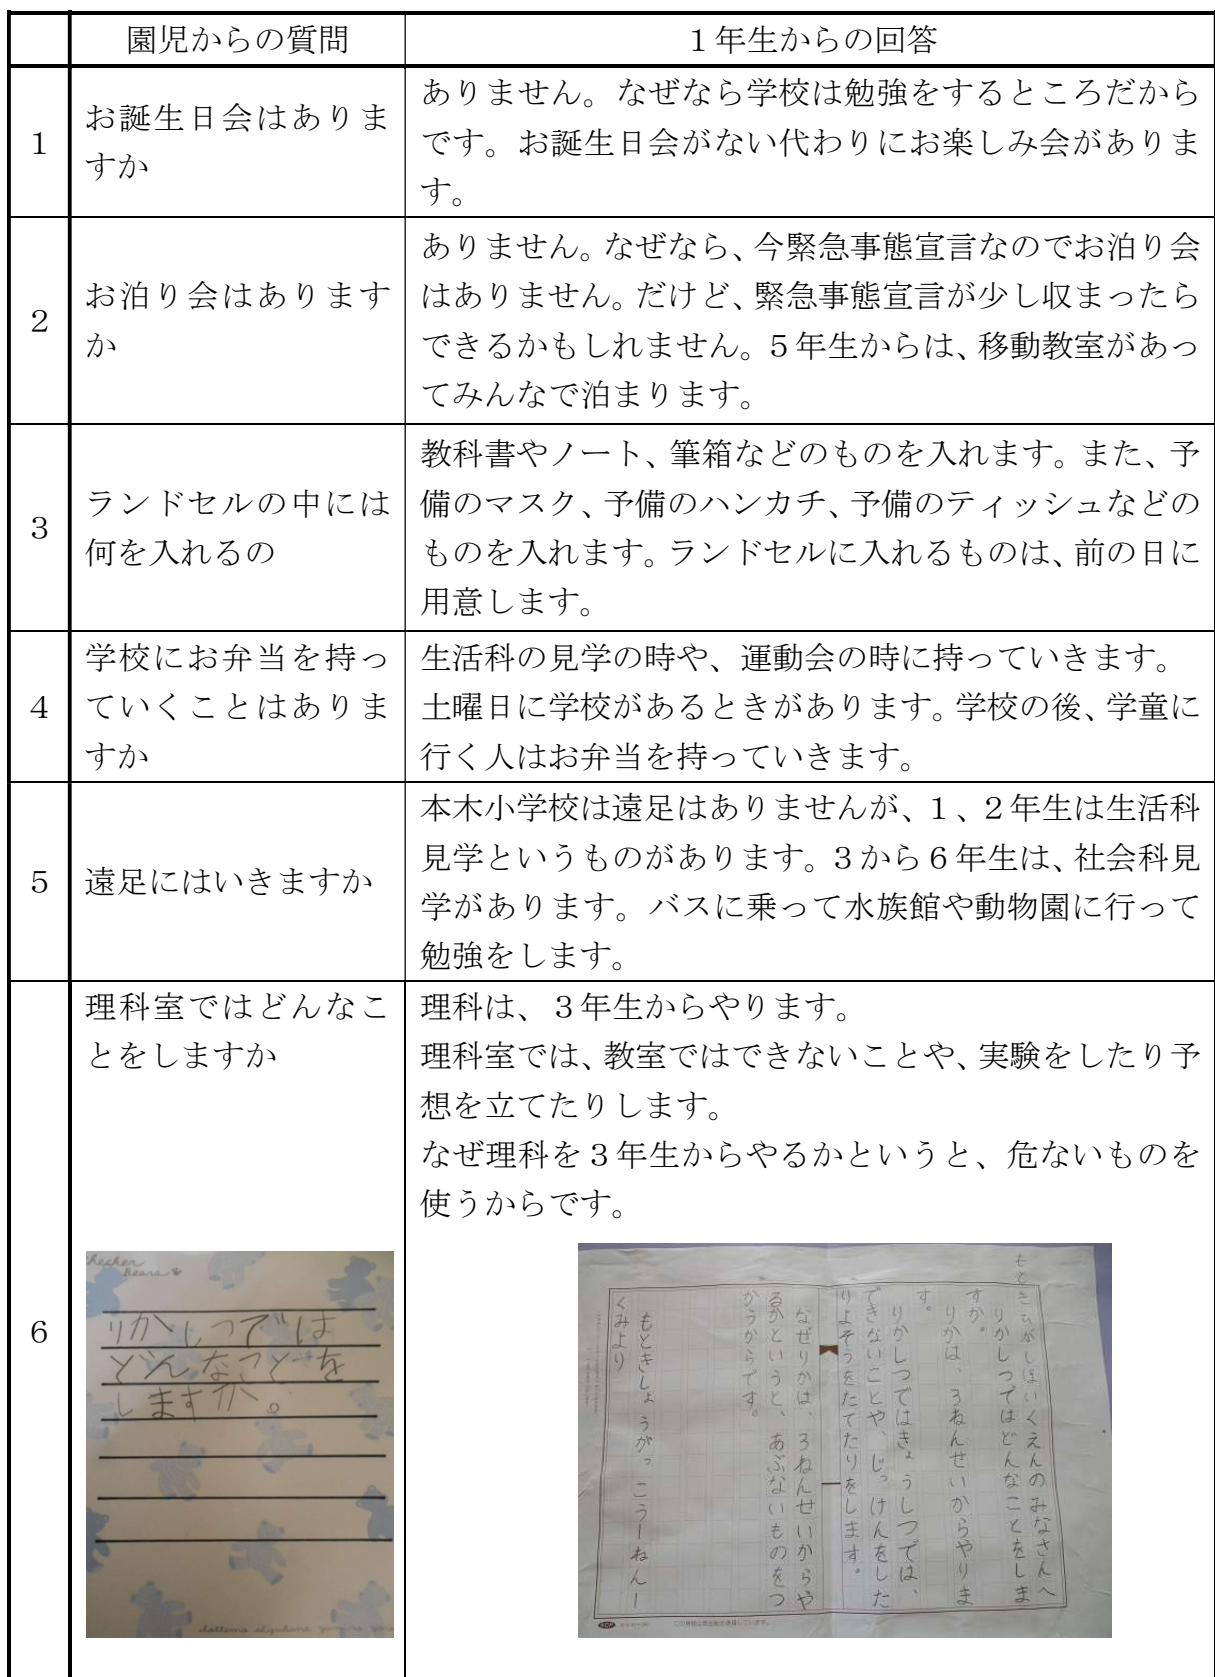 園児からの質問
1年生からの回答
1
お誕生日会はありま
すか
ありません。なぜなら学校は勉強をするところだから
です。お誕生日会がない代わりにお楽しみ会がありま
す。
2
お泊り会はあります
か
ありません。なぜなら、今緊急事態宣言なのでお泊り会
はありません。だけど、緊急事態宣言が少し収まったら
できるかもしれません。5年生からは、移動教室があっ
てみんなで泊まります。
3
ランドセルの中には
何を入れるの
教科書やノート、筆箱などのものを入れます。また、予
備のマスク、予備のハンカチ、予備のティッシュなどの
ものを入れます。ランドセルに入れるものは、前の日に
用意します。
4
学校にお弁当を持っ
ていくことはありま
すか
生活科の見学の時や、運動会の時に持っていきます。
土曜日に学校があるときがあります。学校の後、学童に
行く人はお弁当を持っていきます。
5
遠足にはいきますか
本木小学校は遠足はありませんが、1、2年生は生活科
見学というものがあります。3から6年生は、社会科見
学があります。バスに乗って水族館や動物園に行って
勉強をします。
6
理科室ではどんなこ
とをしますか
理科は、3年生からやります。
理科室では、教室ではできないことや、実験をしたり予
想を立てたりします。
なぜ理科を3年生からやるかというと、危ないものを
使うからです。
checker
Bears
りかしつでは
どんなことを
しますか。
もときひがしほいくえんのみなさんへ
りかしつではどんなことをしま
すか。
りかは、3ねんせいからやりま
す。
りかしつではきょうしつでは、
できないことや、じっけんをした
りよそうをたてたりをします。
なぜりかは、3ねんせいからや
るかというと、あぶないものをつ
かうからです。
もときしょうがっこう一ねん一
くみより